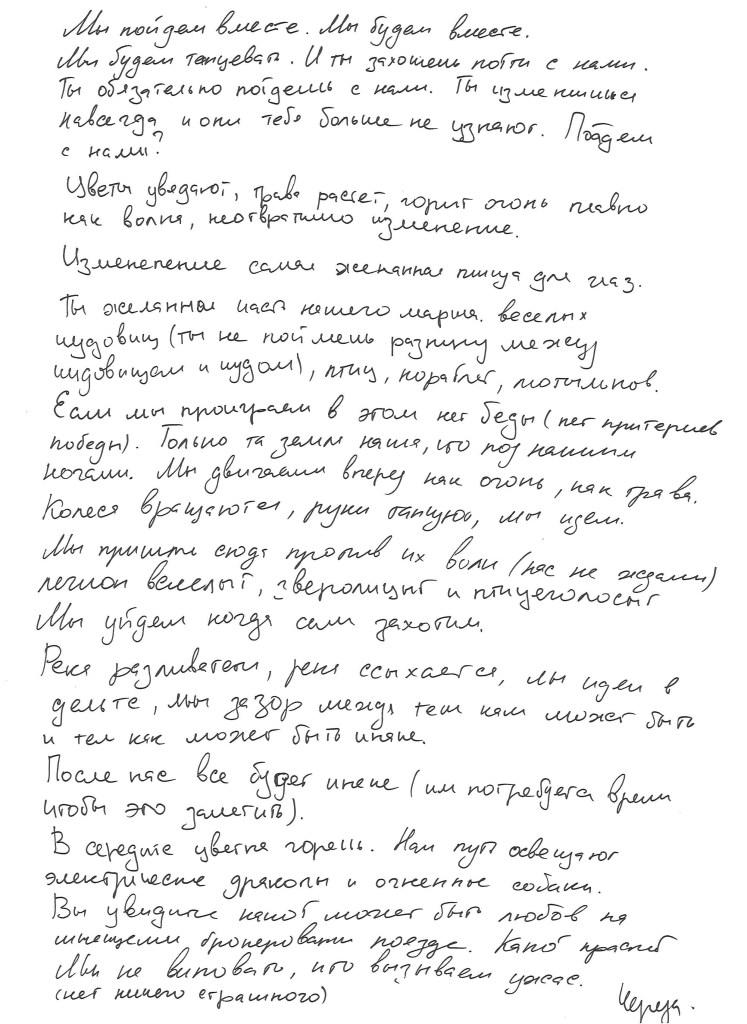 Мы пойдем вместе. Мы будем вместе.
Мы будем танцевать. И ты захочешь пойти с нами.
Ты обязательно пойдешь с нами. Ты изменишься
навсегда и они тебя больше не узнают. Пойдем
с нами?
Цветы увядают, трава растет, горит огонь плавно
как волна, неотвратимо изменение.
Изменение самая желанная пища для глаз.
Ты желанная часть нашего марша. веселых
чудовищ (ты не поймешь разницу между
чудовищем и чудом), птиц, кораблей, мотыльков.
Если мы проиграем в этом нет беды (нет критериев
победы). Только та земля наша, что под нашими
ногами. Мы двигаемся вперед как огонь, как трава.
Колеса вращаются, руки танцуют, мы идем.
Мы пришли сюда против их воли (нас не ждали)
легион веселый, зверолицый и птицеголосый
Мы уйдем когда сами захотим.
Река разливается, река ссыхается, мы идем в
дельте, мы зазор между тем как может быть
и тем как может быть иначе.
После нас все будет иначе (им потребуется время
чтобы это заметить).
В середине цветка горечь. Нам путь освещают
электрические драконы и огненные собаки.
Вы увидите какой может быть любовь на
мчащемся бронеровати поезде. Какой красной
Мы не виноваты, что вызываем ужас.
(нет ничего страшного)